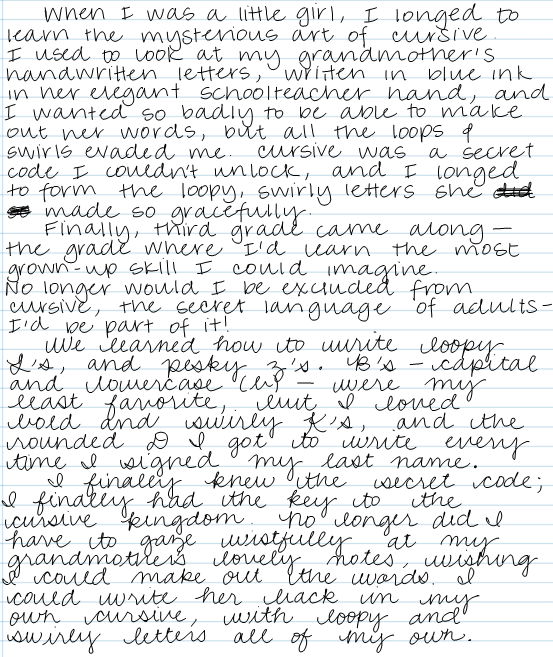 When I was a little girl, I longed to
learn the mysterious art of cursive.
I used to look at my grandmother's
handwritten letters, written in blue ink
in her elegant schoolteacher hand, and
I wanted so badly to be able to make
out her words, but all the loops &
swirls evaded me. Cursive was a secret
code I couldn't unlock, and I longed
to form the loopy, swirly letters she did
made so gracefully.
Finally, third grade came along —
the grade where I'd learn the most
grown-up skill I could imagine.
No longer would I be excluded from
cursive, the secret language of adults—
I'd be part of it!
We learned how to write loopy
L's, and pesky z's. B's — capital
and lowercase (b) — were my
least favorite, but I loved
bold and swirly K's, and the
rounded D I got to write every
time I signed my last name.
I finally knew the secret code;
I finally had the key to the
cursive kingdom. No longer did I
have to gaze wistfully at my
grandmothers lovely notes, wishing
I could make out the words. I
could write her back in my
own cursive, with loopy and
swirly letters all of my own.